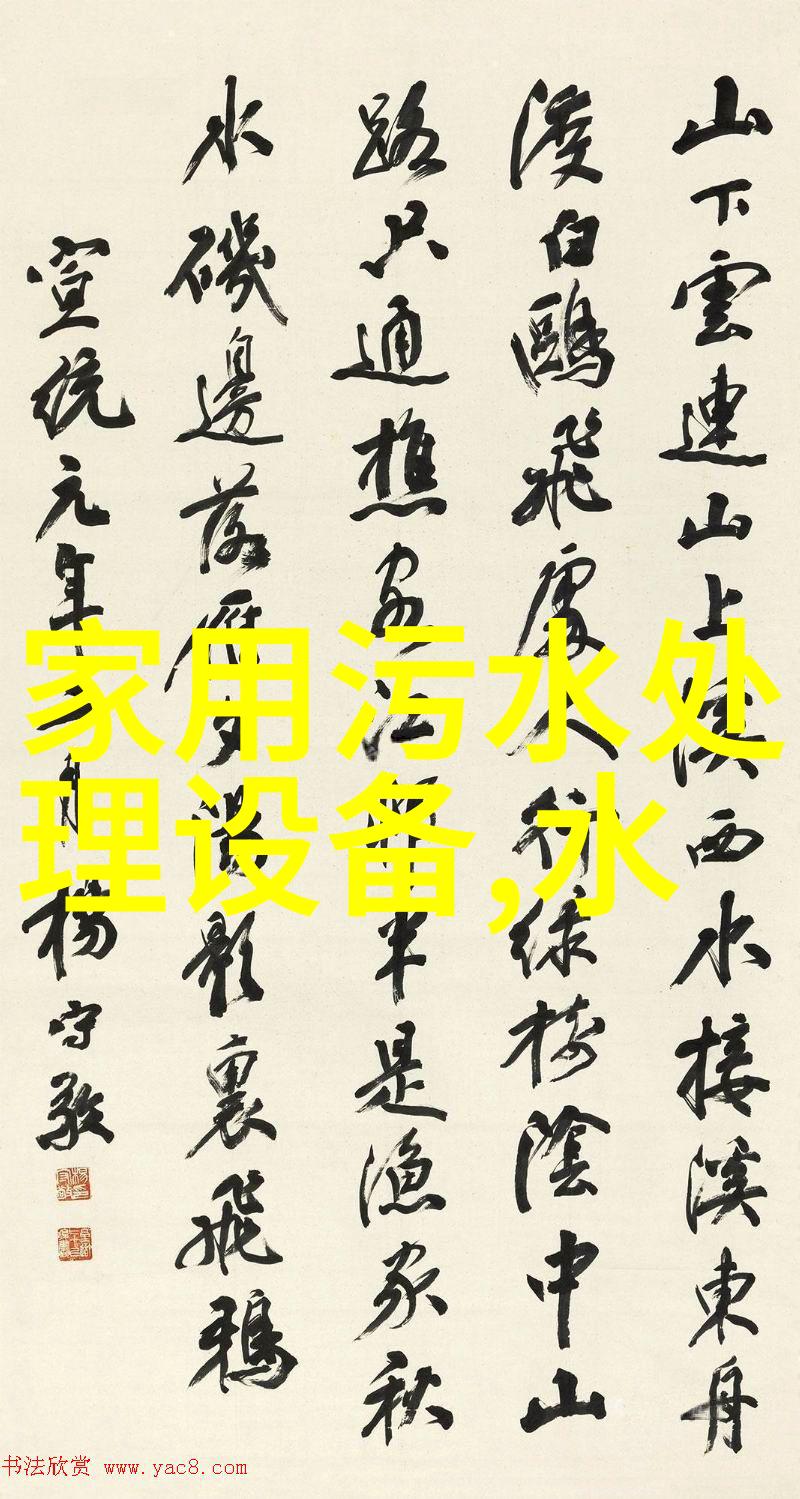 山下雲連山上溪西水接溪東舟
渡白鷗飛處人行綠樹陰中山
路只通樵客江村半是漁家秋
水磯邊落雁夕陽影裏飛鴉
宣統元年月楊守敬
家用污水处
理设备,水
书法欣赏 www.yac8.com